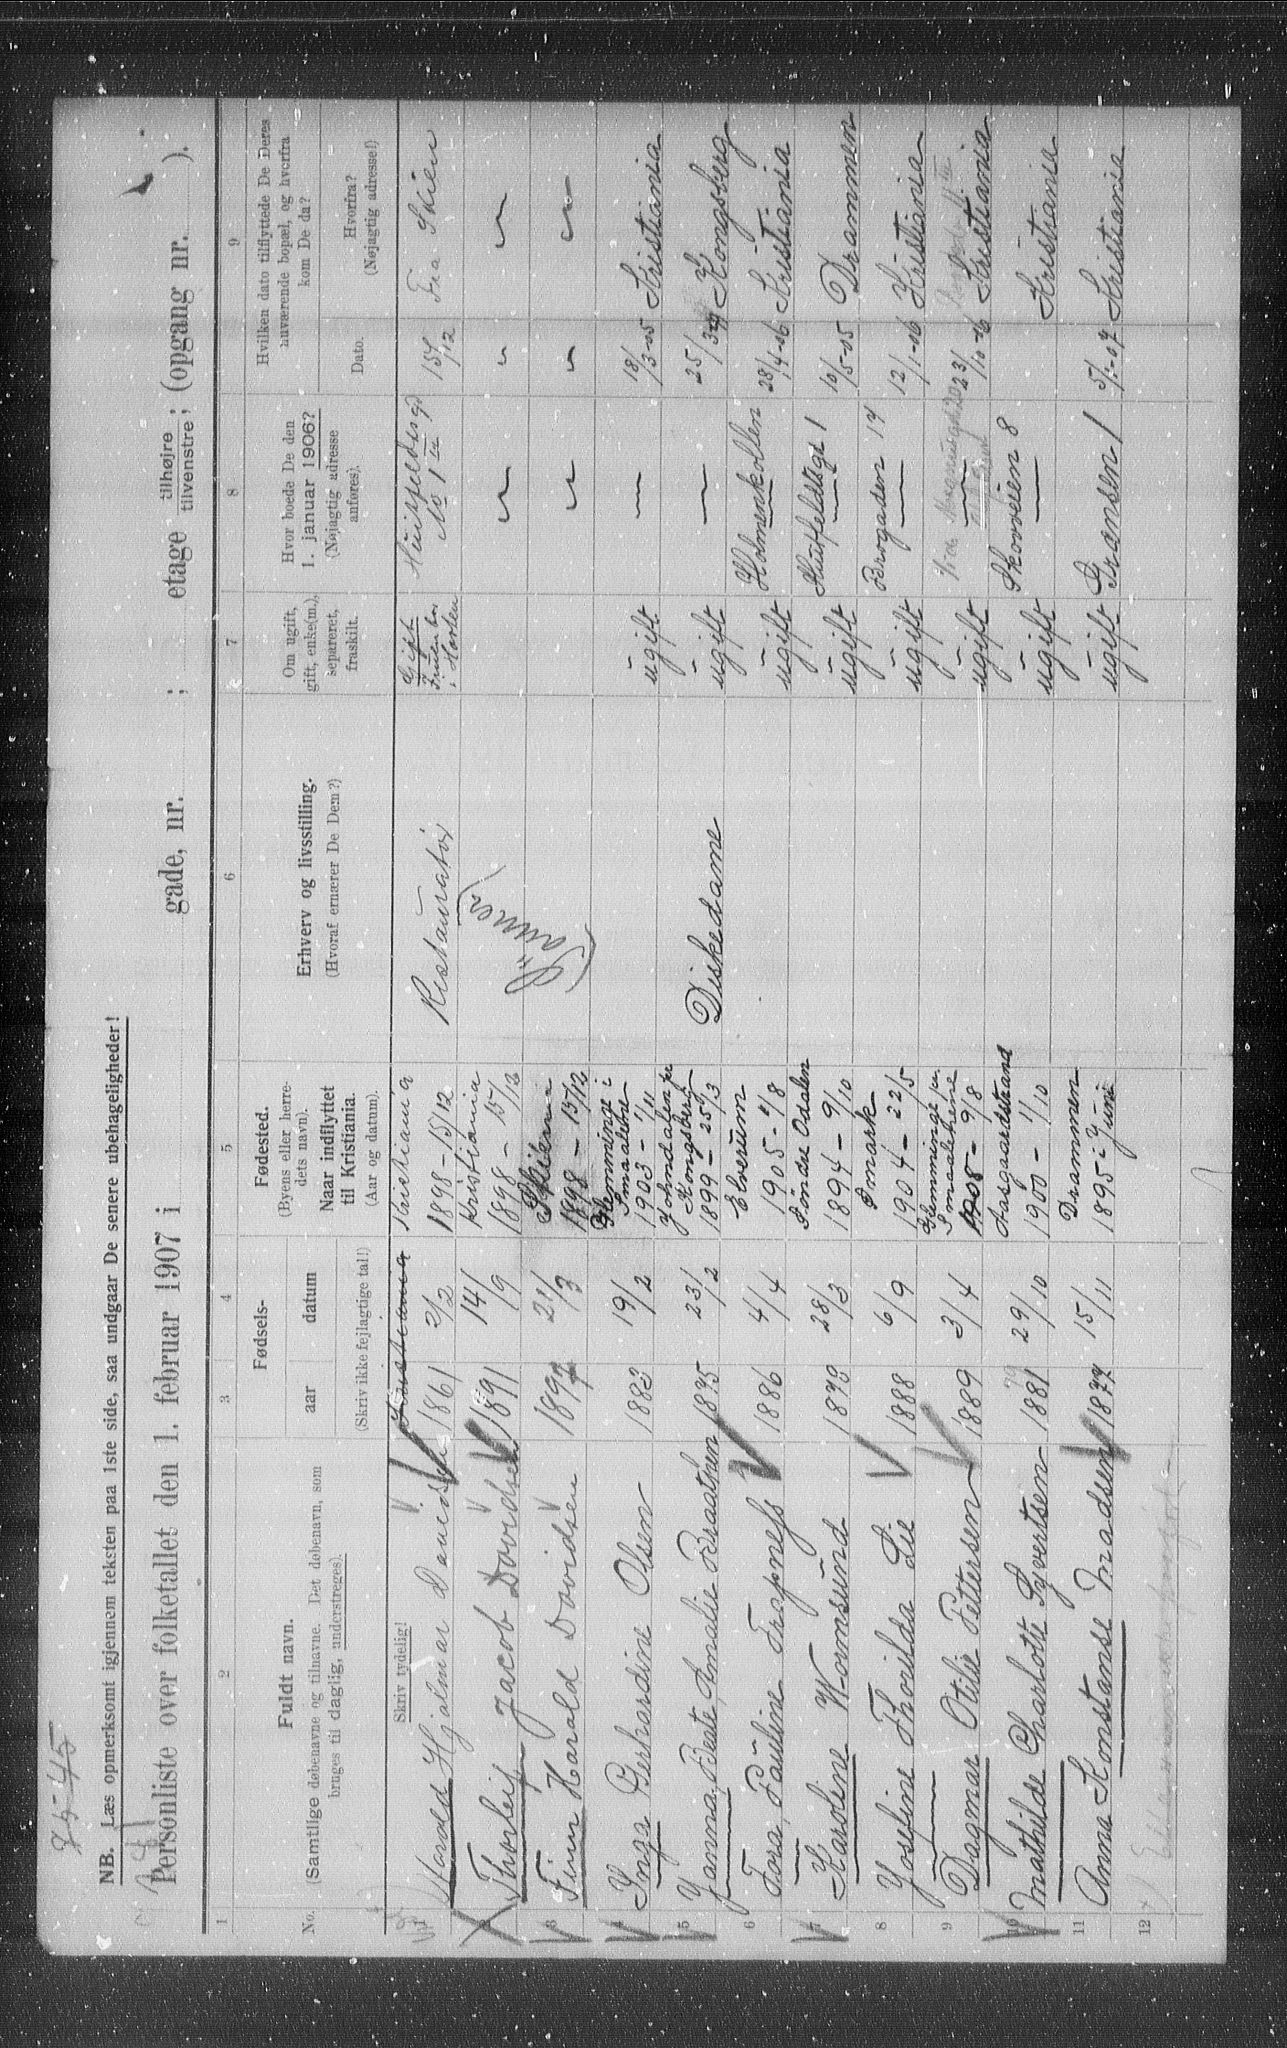 75-45
NB. Læs opmerksomt igjennem teksten paa 1ste side, saa undgaar De senere ubehageligheder!
Personliste over folketallet den 1. februar 1907 i gade, nr. ; etage tilhøjre tilvenstre; (opgang nr. ).
1 2 3 4 5 6 7 8 9
No.
Fuldt navn.
(Samtlige døbenavne og tilnavne. Det døbenavn, som
bruges til daglig, understreges).
Fødsels-
aar datum
(Skriv ikke fejlagtige tal!)
Fødested.
(Byens eller herre-
dets navn).
Naar indflyttet
til Kristiania.
(Aar og datum).
Erhverv og livsstilling.
(Hvoraf ernærer De Dem?)
Om ugift,
gift, enke(m.),
separeret,
fraskilt.
Hvor boede De den
1. januar 1906?
(Nøjagtig adresse
anføres).
Hvilken dato tilflyttede De Deres
nuværende bopæl, og hvorfra
kom De da?
Dato.
Hvorfra?
(Nøjagtig adresse!)
Skriv tydelig!
Harold Hjalmar Davidsen 1861 2/2 Kristiania 1898-15/12 Restauratør Gift Huitfeldtsgd No 1 III 15/12 Fra Skien
2 Thorleif Jacob Davidsen 1891 14/9 Kristiania 1898-15/12 (Sønner) " " "
3 Finn Harald Davidsen 1897 21/3 Skien 1898-15/12 " " "
Inga Gerhardine Olsen 1883 19/2 Glemminge i Smaalene 1903-1/11 ugift — 18/3-05 Kristiania
5 Janna Beate Amalie Braathen 1875 23/2 Johndalen pr Kongsberg 1899-25/3 Diskedame ugift — 25/3 Kongsberg
6 Tora Pauline Trapness 1886 4/4 Elverum 1905-1/8 ugift Holmenkollen 28/4-06 Kristiania
7 Karoline Wormsund 1878 28/3 Søndre Odalen 1894-9/10 ugift Huitfeldtsgt 1 10/5-05 Drammen
8 Josefine Thorilda Lie 1888 6/9 Ømark 1904-22/5 ugift Brogaden 14 12/1-06 Kristiania
9 Dagmar Otilie Pettersen 1889 3/4 Glemminge pr. Smaalenene 1905-9/8 ugift — 23/10-06 Kristiania
10 Mathilde Charlotte Syvertsen 1881 29/10 Aasgaardstrand 1900-1/10 ugift Skovveien 8 Kristiania
11 Anna Konstanse Madsen 1877 15/11 Drammen 1895 i Juni ugift Grænsen 1 5/1-07 Kristiania
12